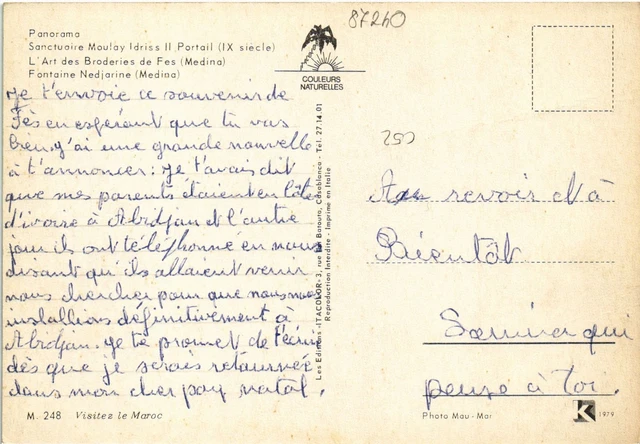 Panorama
Sanctuaire Moulay Idriss II Portail (IX siècle)
L'Art des Broderies de Fes (Medina)
Fontaine Nedjarine (Medina)
87240
COULEURS
NATURELLES
Je t'envoie ce souvenir de
Fès en espérant que tu vas
bien, j'ai une grande nouvelle
à t'annoncer : Je t'avais dit
que mes parents étaient en Côte
d'ivoire à Abidjan et l'autre
jour ils ont téléphonné en nous
disant qu'ils allaient venir
nous chercher pour que nous nous
installions définitivement à
Abidjan. Je te promet de t'écrire
dès que je serais retournée
dans mon cher pay natal.
M. 248 Visitez le Maroc
Les Editions - ITACOLOR - 3, rue Ibn Batouta, Casablanca - Tel. 27.14.01
Reproduction Interdite - Imprime en Italie
C52
Au revoir et à
Bientôt
Samira qui
pense à toi.
Photo Mau - Mar
K 1979